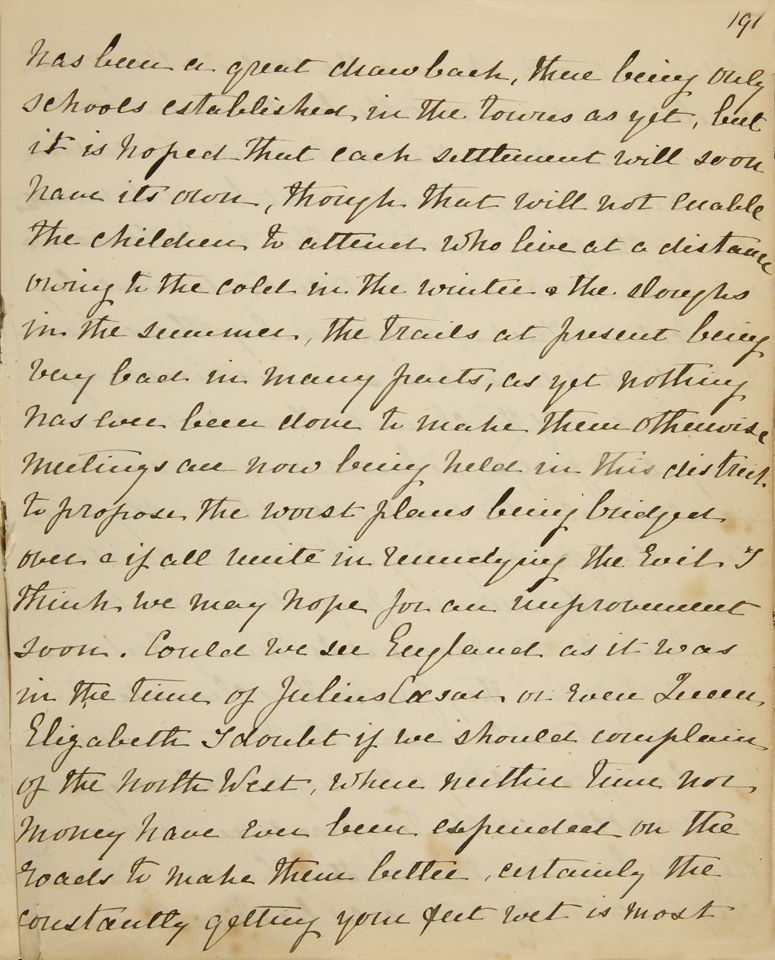 191
has been a great drawback, there being only
schools established in the towns as yet, but
it is hoped that each settlement will soon
have its own, though that will not enable
the children to attend who live at a distance
owing to the cold in the winter & the sloughs
in the summer, the trails at present being
very bad in many parts, as yet nothing
has ever been done to make them otherwise
Meetings are now being held in this district
to propose the worst places being bridged
over & if all unite in remedying the evil I
think we may hope for an improvement
soon. Could we see England as it was
in the time of Julius Cæsar or even Queen
Elizabeth I doubt if we should complain
of the North West, where neither time nor
money have ever been expended on the
roads to make them better, certainly the
constantly getting your feet wet is most